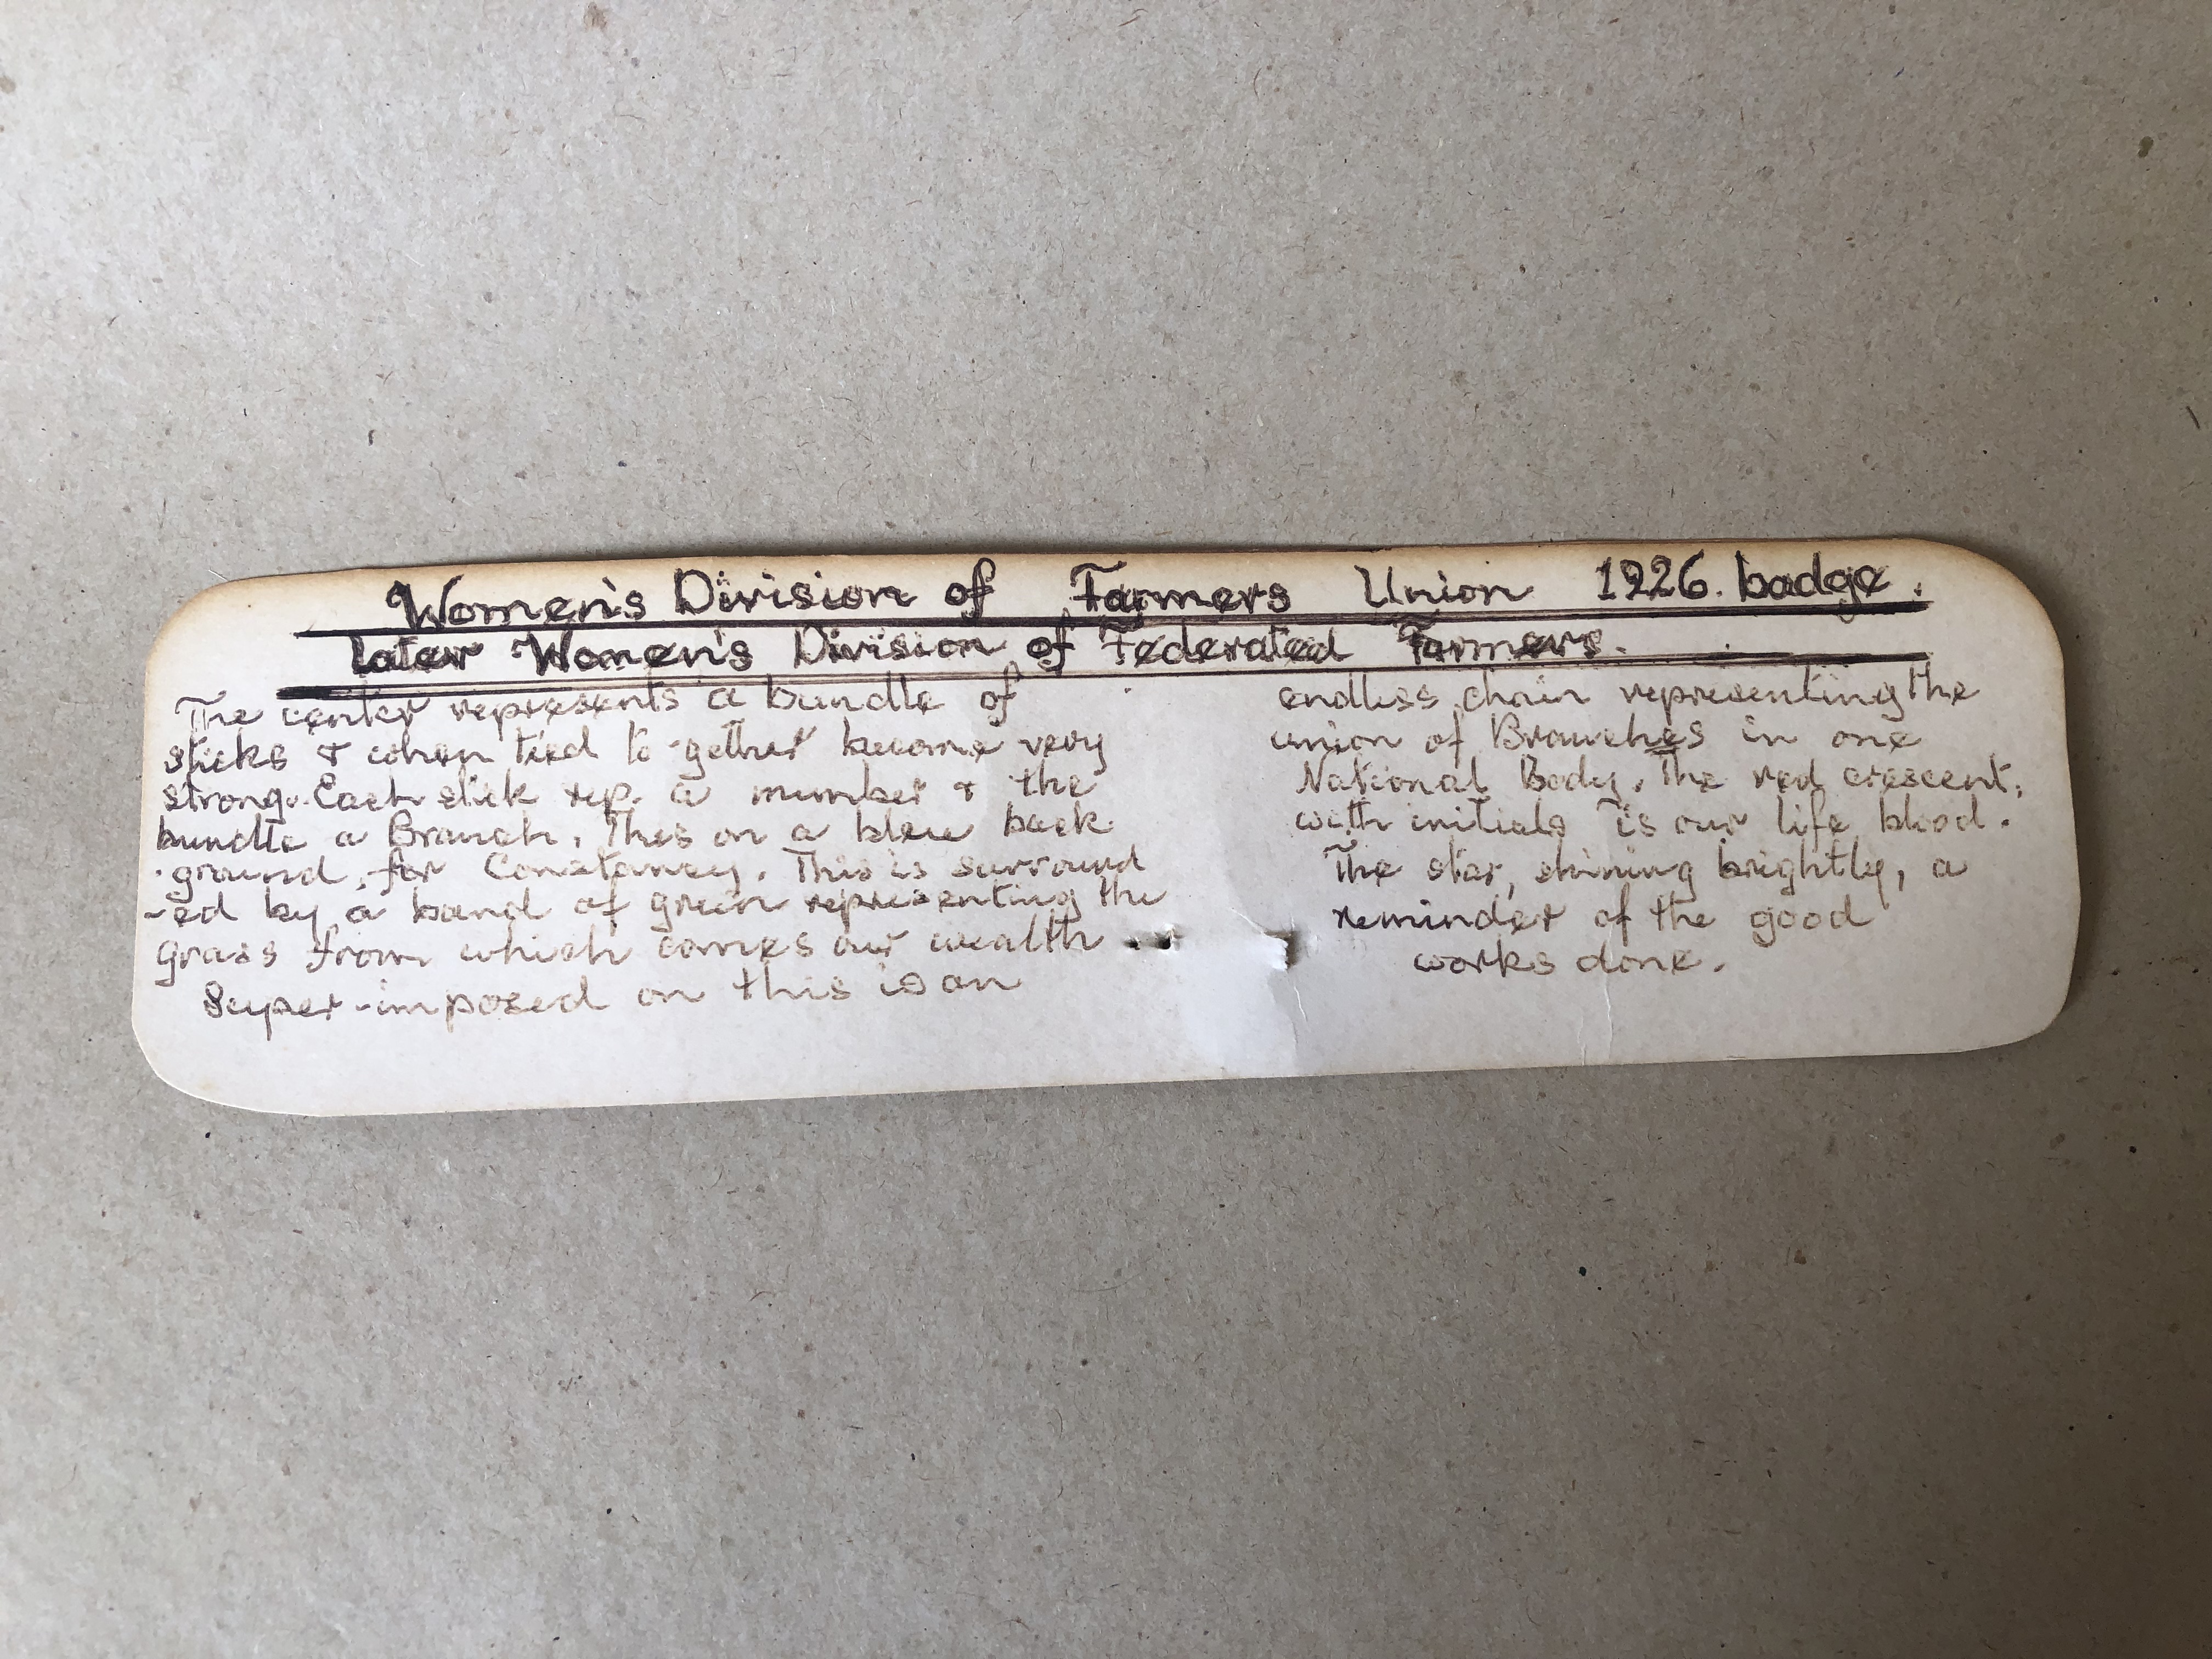 Women's Division of Farmers Union 1926. badge.
later Women's Division of Federated Farmers.
The center represents a bundle of
sticks & when tied to-gether become very
strong. Each stick rep. a member & the
bundle a Branch, this on a blue back
ground, for Constancy. This is surround
-ed by a band of green representing the
grass from which comes our wealth
Super-imposed on this is an
endless chain representing the
union of Branches in one
National Body, the red crescent,
with initials is our life blood.
The star, shining brightly, a
reminder of the good
works done.